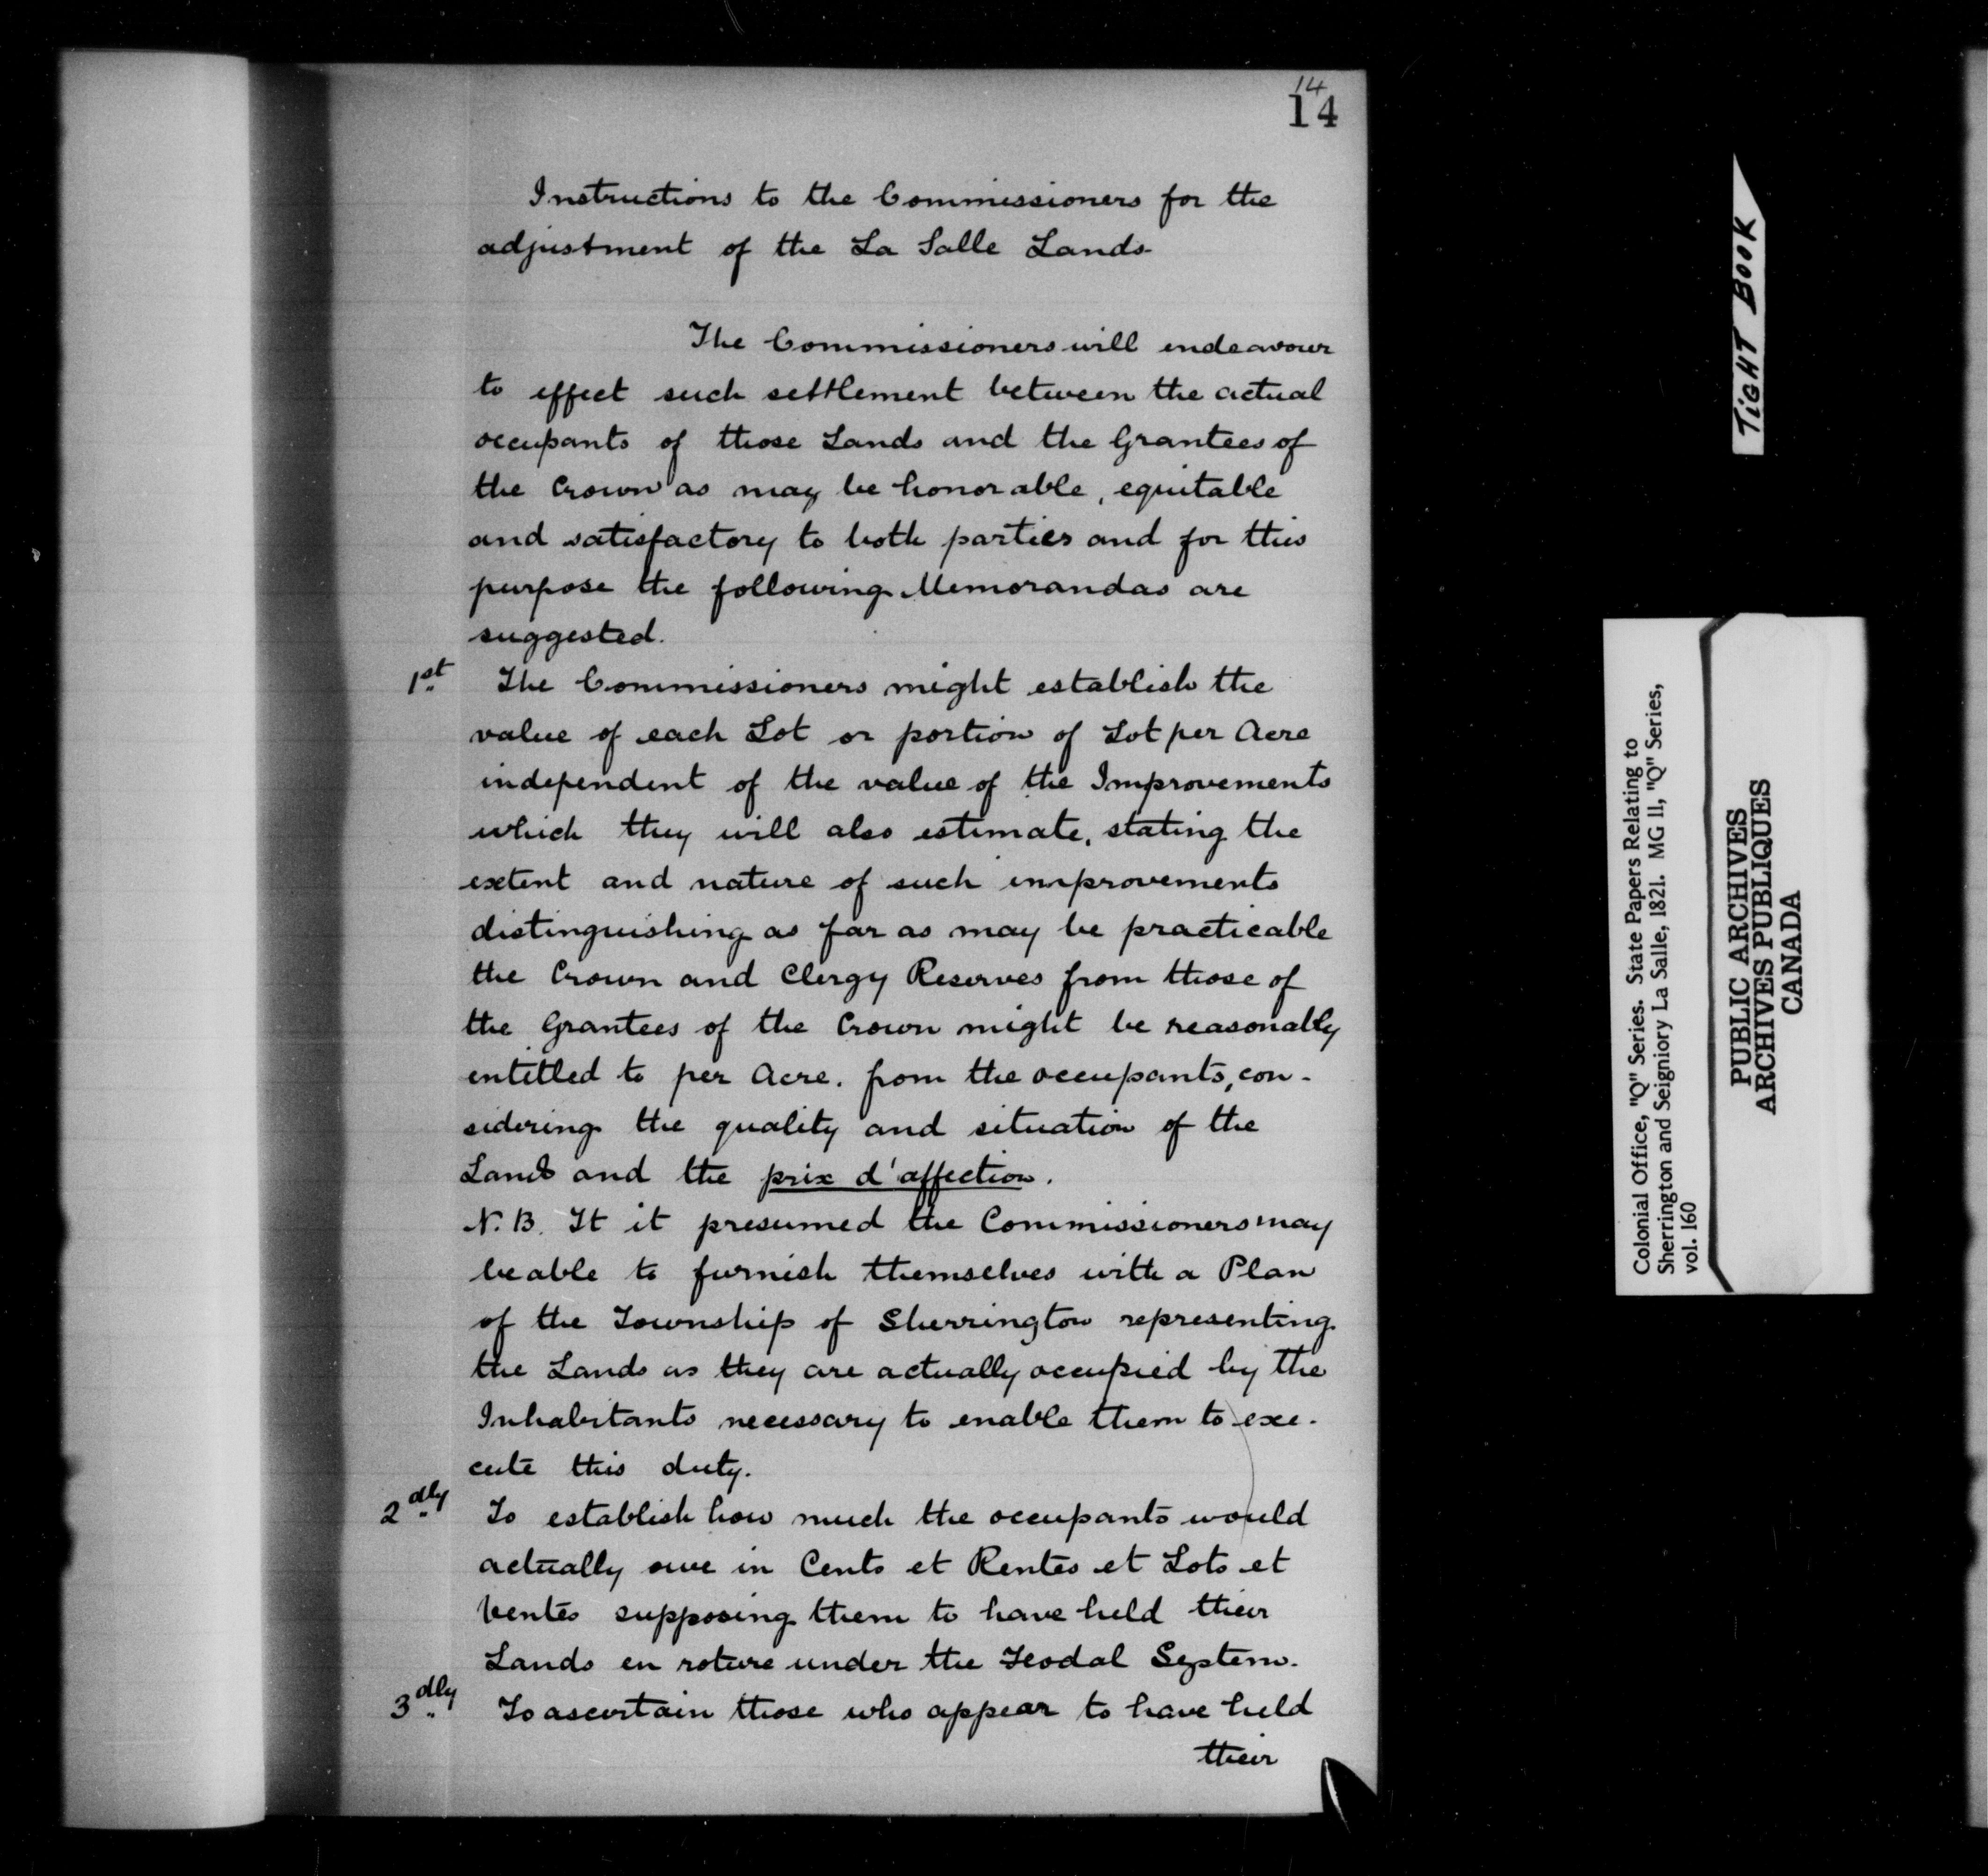 14
14
Instructions to the Commissioners for the
adjustment of the La Salle Lands
The Commissioners will endeavour
to effect such settlement between the actual
occupants of those Lands and the Grantees of
the Crown as may be honorable, equitable
and satisfactory to both parties and for this
purpose the following Memorandas are
suggested.
1st The Commissioners might establish the
value of each Lot or portion of Lot per Acre
independent of the value of the Improvements
which they will also estimate, stating the
extent and nature of such improvements
distinguishing as far as may be practicable
the Crown and Clergy Reserves from those of
the Grantees of the Crown might be reasonably
entitled to per Acre. from the occupants, con-
sidering the quality and situation of the
Lands and the prix d'affection.
N.B. It it presumed the Commissioners may
be able to furnish themselves with a Plan
of the Township of Sherrington representing
the Lands as they are actually occupied by the
Inhabitants necessary to enable them to exe-
cute this duty.
2dly To establish how much the occupants would
actually owe in Cents et Rentes et Lots et
Ventes supposing them to have held their
Lands en roture under the Feodal System.
3dly To ascertain those who appear to have held
their
TIGHT BOOK
Colonial Office, "Q" Series. State Papers Relating to
Sherrington and Seigniory La Salle, 1821. MG 11, "Q" Series,
vol. 160
PUBLIC ARCHIVES
ARCHIVES PUBLIQUES
CANADA